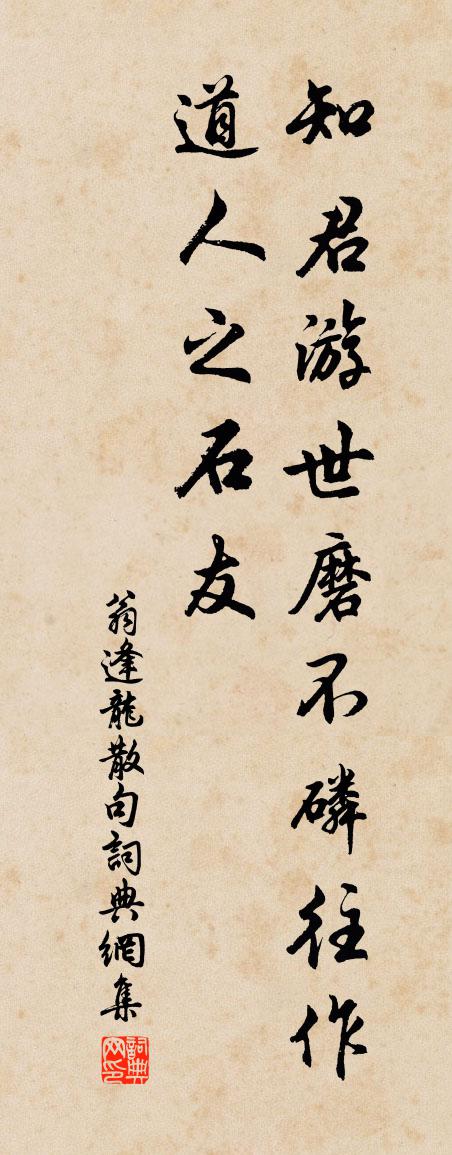 知君游世磨不磷往作
道人之石友
翁逢龍散句詞典網集
詞典网印